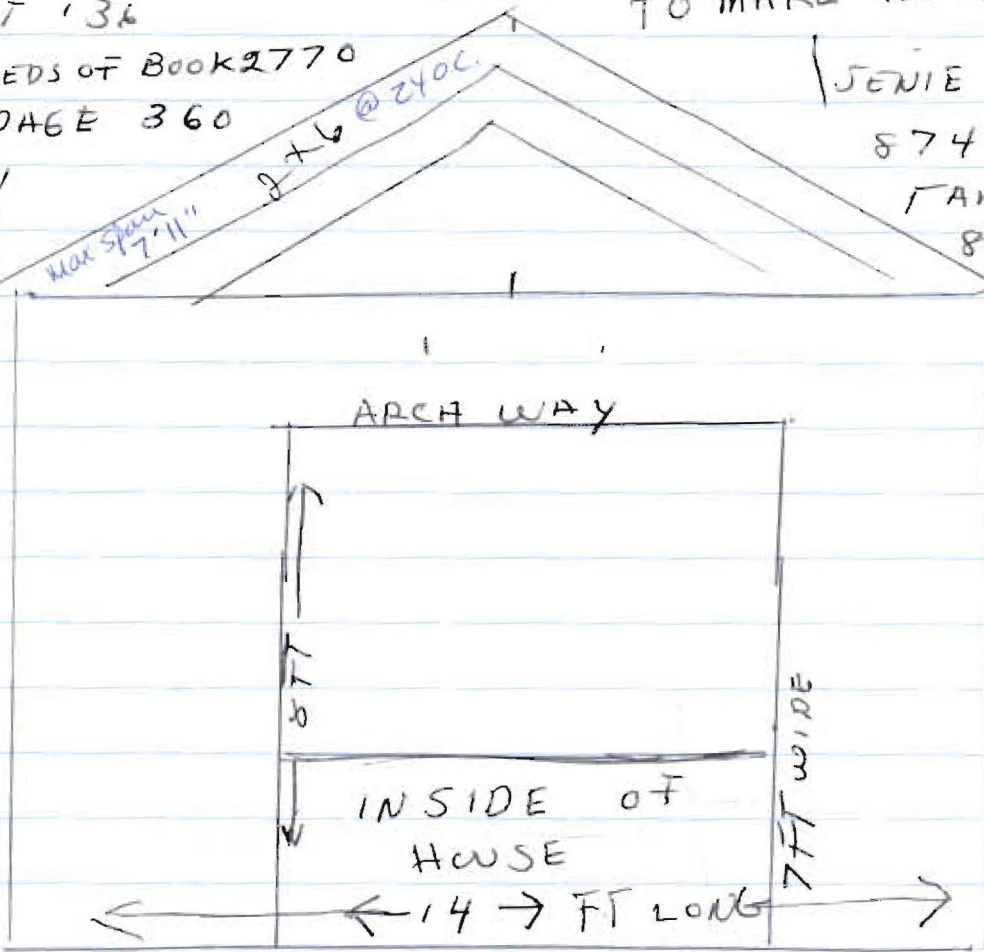 T '36
TO MAKE
EDS OF BOOK 2770
PAGE 360
JENIE
874
8
2x6 @ 24 OC.
Max Span
7'11"
ARCH WAY
8 FT
7 FT WIDE
INSIDE OF
HOUSE
14 FT LONG